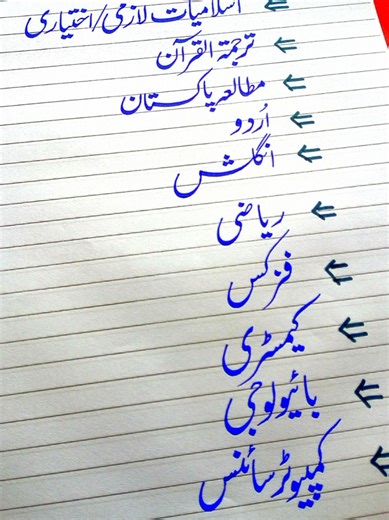 ⇐ اسلامیات لازمی/اختیاری
⇐ ترجمۃ القرآن
⇐ مطالعہ پاکستان
⇐ اُردو
⇐ انگلش
⇐ ریاضی
⇐ فزکس
⇐ کیمسٹری
⇐ بائیولوجی
⇐ کمپیوٹر سائنس